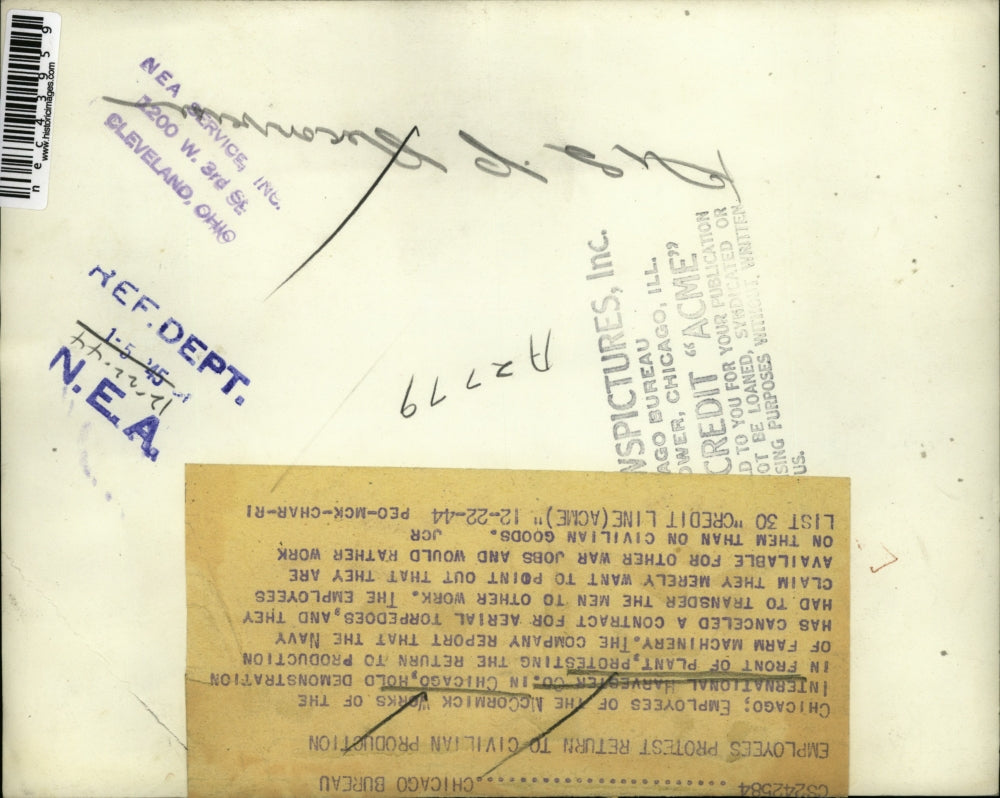 nec43959
www.historicimages.com
NEA SERVICE, INC.
1200 W. 3rd St.
CLEVELAND, OHIO
REF. DEPT.
1-5 '45
12-22-44
N.E.A.
A2779
NSPICTURES, Inc.
AGO BUREAU
OWER, CHICAGO, ILL.
CREDIT “ACME”
D TO YOU FOR YOUR PUBLICATION
OT BE LOANED, SYNDICATED OR
SING PURPOSES WITHOUT WRITTEN
US.
CS242584 CHICAGO BUREAU
EMPLOYEES PROTEST RETURN TO CIVILIAN PRODUCTION
CHICAGO; EMPLOYEES OF THE MCCORMICK WORKS OF THE
INTERNATIONAL HARVESTER CO. IN CHICAGO, HOLD DEMONSTRATION
IN FRONT OF PLANT, PROTESTING THE RETURN TO PRODUCTION
OF FARM MACHINERY. THE COMPANY REPORT THAT THE NAVY
HAS CANCELED A CONTRACT FOR AERIAL TORPEDOES, AND THEY
HAD TO TRANSDER THE MEN TO OTHER WORK. THE EMPLOYEES
CLAIM THEY MERELY WANT TO POINT OUT THAT THEY ARE
AVAILABLE FOR OTHER WAR JOBS AND WOULD RATHER WORK
ON THEM THAN ON CIVILIAN GOODS. JCR
LIST 30 "CREDIT LINE(ACME)" 12-22-44 PEO-MCK-CHAR-RI